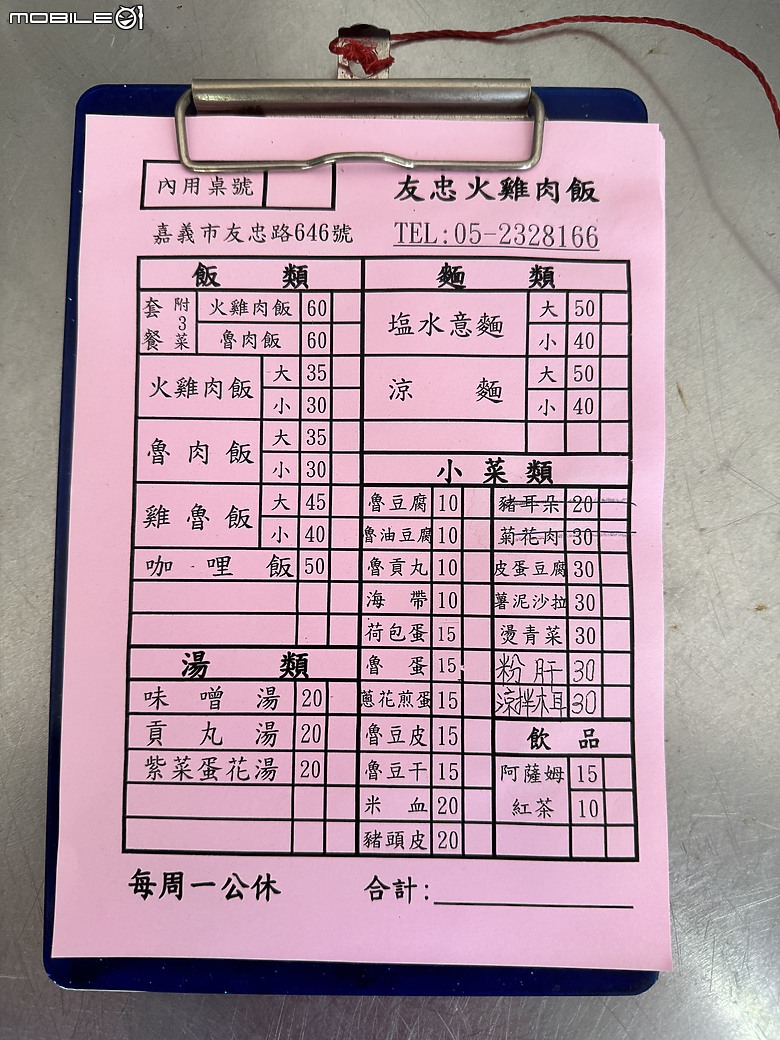 MOBILE01
內用桌號
友忠火雞肉飯
嘉義市友忠路646號
TEL:05-2328166
飯 類
套餐 附3菜 火雞肉飯 60
魯肉飯 60
火雞肉飯 大 35
小 30
魯肉飯 大 35
小 30
雞魯飯 大 45
小 40
咖哩飯 50
湯 類
味噌湯 20
貢丸湯 20
紫菜蛋花湯 20
麵 類
塩水意麵 大 50
小 40
涼麵 大 50
小 40
小菜類
魯豆腐 10
魯油豆腐 10
魯貢丸 10
海帶 10
荷包蛋 15
魯蛋 15
蔥花煎蛋 15
魯豆皮 15
魯豆干 15
米血 20
豬頭皮 20
豬耳朵 20
菊花肉 30
皮蛋豆腐 30
薯泥沙拉 30
燙青菜 30
粉肝 30
涼拌木耳 30
飲品
阿薩姆 15
紅茶 10
每周一公休
合計: